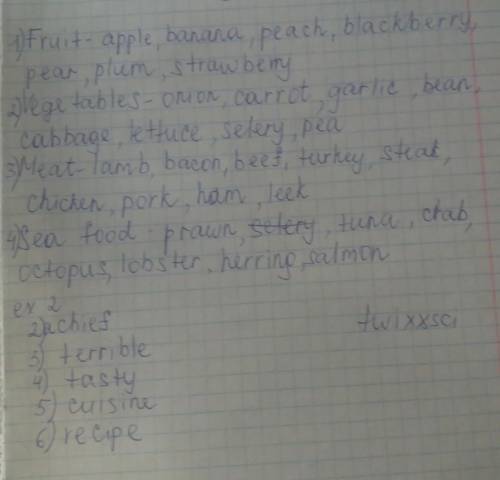 1) Fruit - apple, banana, peach, blackberry,
pear, plum, strawberry
2) Vegetables - onion, carrot, garlic, bean,
cabbage, lettuce, selery, pea
3) Meat - lamb, bacon, beef, turkey, steak,
chicken, pork, ham, leek
4) Sea food - prawn, selery, tuna, crab,
octopus, lobster, herring, salmon
ex 2
2) a chief
twixxsci
3) terrible
4) tasty
5) cuisine
6) recipe